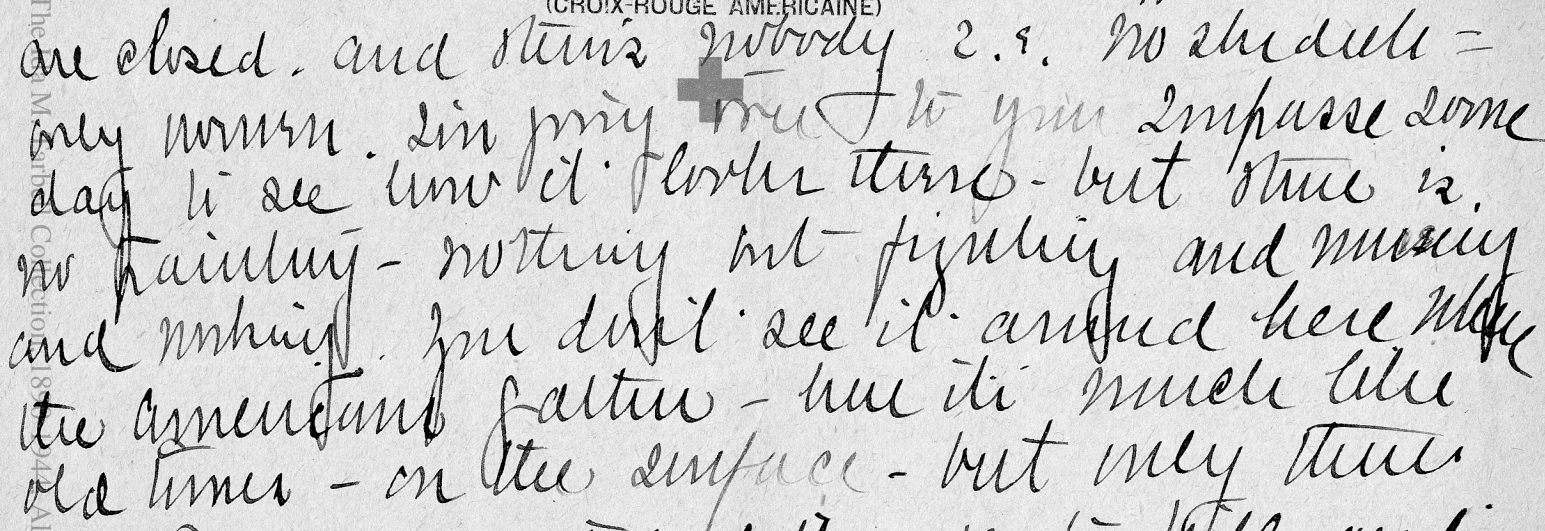 (CROIX-ROUGE AMERICAINE)
are closed. and there's nobody i.e. no students =
only women. I'm going over to your Impasse some
day to see how it looks there - but there is
no painting - nothing but fighting and nursing
and working. You don't see it around here where
the Americans gather - here it's much like
old times - on the surface - but only there